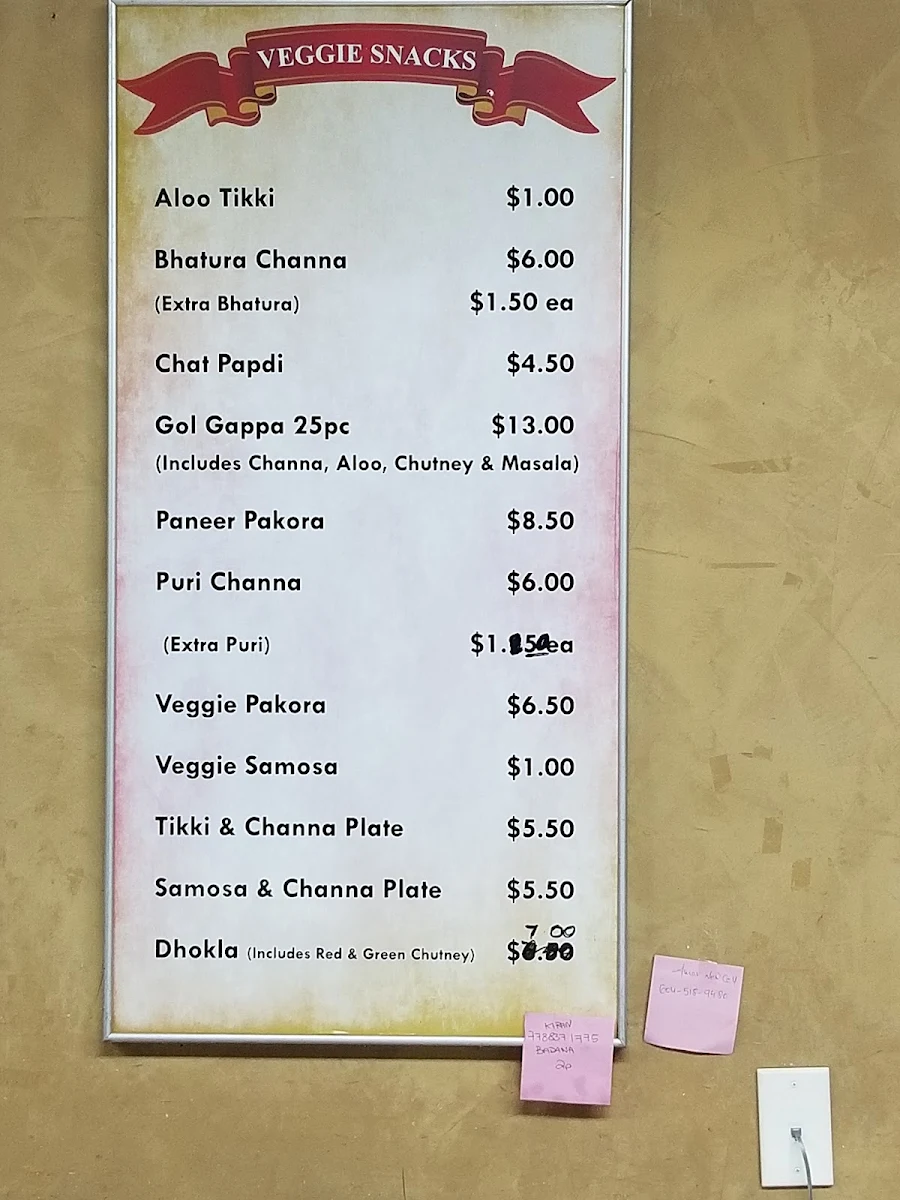 VEGGIE SNACKS
Aloo Tikki $1.00
Bhatura Channa $6.00
(Extra Bhatura) $1.50 ea
Chat Papdi $4.50
Gol Gappa 25pc $13.00
(Includes Channa, Aloo, Chutney & Masala)
Paneer Pakora $8.50
Puri Channa $6.00
(Extra Puri) $1.50 ea
Veggie Pakora $6.50
Veggie Samosa $1.00
Tikki & Channa Plate $5.50
Samosa & Channa Plate $5.50
7 00
Dhokla (Includes Red & Green Chutney) $
KIRAN
BADANA